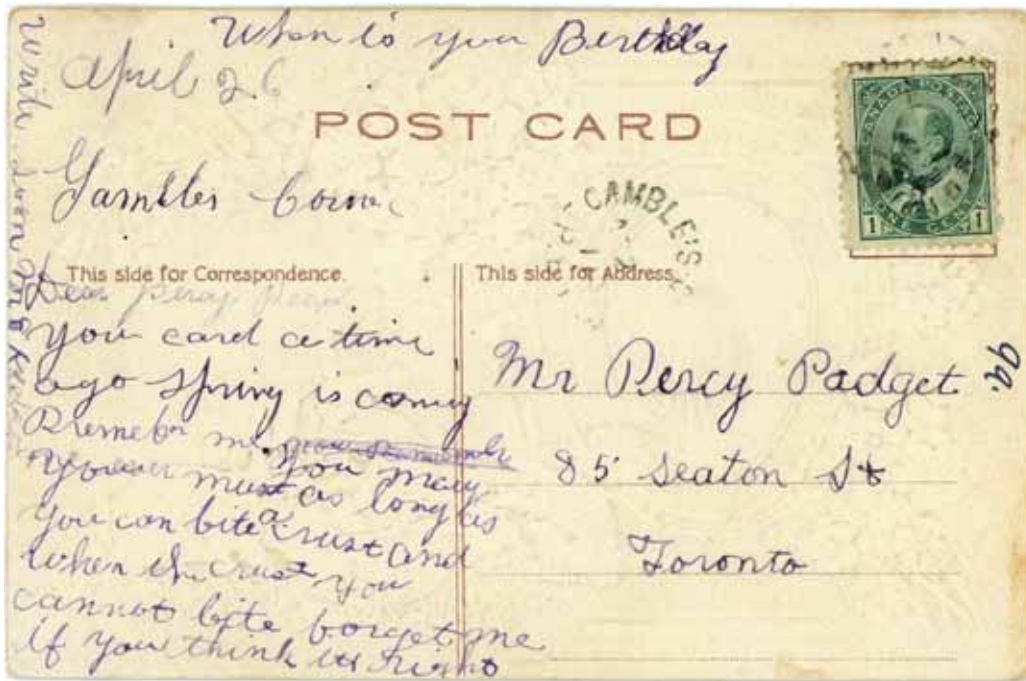 When is your Birthday
April 26
POST CARD
Gambles Corner
CAMBLE'S
CANADA POSTAGE
1 ONE CENT 1
This side for Correspondence.
This side for Address.
Dear percy
you card a time
ago spring is coming
Rremeber me
you may
as long as
you can bite a crust and
when the crust you
cannot bite borget me
if you think its right
Write soon
Mr Percy Padget
85 Seaton St
Toronto